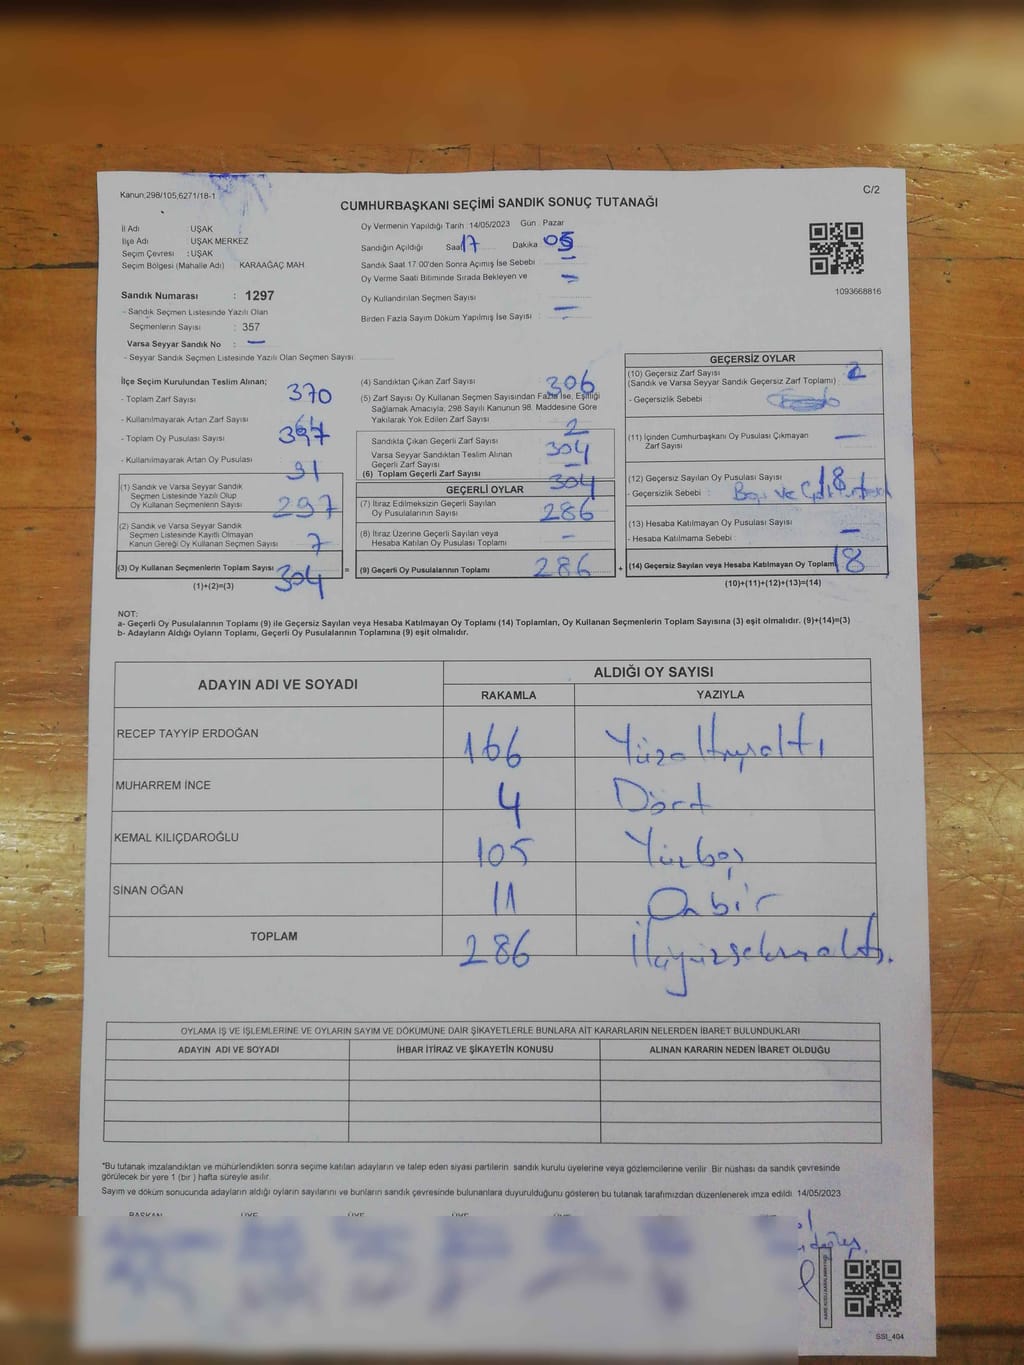 Kanun;298/105,6271/18-1
C/2
CUMHURBAŞKANI SEÇİMİ SANDIK SONUÇ TUTANAĞI
İl Adı : UŞAK
İlçe Adı UŞAK MERKEZ
Seçim Çevresi : UŞAK
Seçim Bölgesi (Mahalle Adı) KARAAĞAÇ MAH
Sandık Numarası : 1297
- Sandık Seçmen Listesinde Yazılı Olan
Seçmenlerin Sayısı : 357
Varsa Seyyar Sandık No : —
- Seyyar Sandık Seçmen Listesinde Yazılı Olan Seçmen Sayısı:
Oy Vermenin Yapıldığı Tarih :14/05/2023 Gün : Pazar
Sandığın Açıldığı Saat 17 Dakika 05
Sandık Saat 17:00'den Sonra Açımış İse Sebebi : —
Oy Verme Saati Bitiminde Sırada Bekleyen ve —
Oy Kullandırılan Seçmen Sayısı
Birden Fazla Sayım Döküm Yapılmış İse Sayısı : —
1093668816
İlçe Seçim Kurulundan Teslim Alınan;
- Toplam Zarf Sayısı : 370
- Kullanılmayarak Artan Zarf Sayısı : 64
- Toplam Oy Pusulası Sayısı : 397
- Kullanılmayarak Artan Oy Pusulası 91
(1) Sandık ve Varsa Seyyar Sandık
Seçmen Listesinde Yazılı Olup
Oy Kullanan Seçmenlerin Sayısı 297
(2) Sandık ve Varsa Seyyar Sandık
Seçmen Listesinde Kayıtlı Olmayan
Kanun Gereği Oy Kullanan Seçmen Sayısı 7
(3) Oy Kullanan Seçmenlerin Toplam Sayısı 304 =
(1)+(2)=(3)
(4) Sandıktan Çıkan Zarf Sayısı 306
(5) Zarf Sayısı Oy Kullanan Seçmen Sayısından Fazla İse, Eşitliği
Sağlamak Amacıyla; 298 Sayılı Kanunun 98. Maddesine Göre
Yakılarak Yok Edilen Zarf Sayısı 2
Sandıkta Çıkan Geçerli Zarf Sayısı 304
Varsa Seyyar Sandıktan Teslim Alınan
Geçerli Zarf Sayısı —
(6) Toplam Geçerli Zarf Sayısı 304
GEÇERLİ OYLAR
(7) İtiraz Edilmeksizin Geçerli Sayılan
Oy Pusulalarının Sayısı 286
(8) İtiraz Üzerine Geçerli Sayılan veya
Hesaba Katılan Oy Pusulası Toplamı —
(9) Geçerli Oy Pusulalarının Toplamı 286 +
GEÇERSİZ OYLAR
(10) Geçersiz Zarf Sayısı 2
(Sandık ve Varsa Seyyar Sandık Geçersiz Zarf Toplamı) :
- Geçersizlik Sebebi :
(11) İçinden Cumhurbaşkanı Oy Pusulası Çıkmayan
Zarf Sayısı —
(12) Geçersiz Sayılan Oy Pusulası Sayısı : 18
- Geçersizlik Sebebi : Boş ve
(13) Hesaba Katılmayan Oy Pusulası Sayısı —
- Hesaba Katılmama Sebebi :
(14) Geçersiz Sayılan veya Hesaba Katılmayan Oy Toplamı 18
(10)+(11)+(12)+(13)=(14)
NOT:
a- Geçerli Oy Pusulalarının Toplamı (9) ile Geçersiz Sayılan veya Hesaba Katılmayan Oy Toplamı (14) Toplamları, Oy Kullanan Seçmenlerin Toplam Sayısına (3) eşit olmalıdır. (9)+(14)=(3)
b- Adayların Aldığı Oyların Toplamı, Geçerli Oy Pusulalarının Toplamına (9) eşit olmalıdır.
ADAYIN ADI VE SOYADI ALDIĞI OY SAYISI
RAKAMLA YAZIYLA
RECEP TAYYİP ERDOĞAN 166 Yüzaltmışaltı
MUHARREM İNCE 4 Dört
KEMAL KILIÇDAROĞLU 105 Yüzbeş
SİNAN OĞAN 11 Onbir
TOPLAM 286 İkiyüzseksenaltı.
OYLAMA İŞ VE İŞLEMLERİNE VE OYLARIN SAYIM VE DÖKÜMÜNE DAİR ŞİKAYETLERLE BUNLARA AİT KARARLARIN NELERDEN İBARET BULUNDUKLARI
ADAYIN ADI VE SOYADI İHBAR İTİRAZ VE ŞİKAYETİN KONUSU ALINAN KARARIN NEDEN İBARET OLDUĞU
*Bu tutanak imzalandıktan ve mühürlendikten sonra seçime katılan adayların ve talep eden siyasi partilerin sandık kurulu üyelerine veya gözlemcilerine verilir. Bir nüshası da sandık çevresinde
görülecek bir yere 1 (bir ) hafta süreyle asılır.
Sayım ve döküm sonucunda adayların aldığı oyların sayılarını ve bunların sandık çevresinde bulunanlara duyurulduğunu gösteren bu tutanak tarafımızdan düzenlenerek imza edildi. 14/05/2023
BAŞKAN ÜYE ÜYE ÜYE ÜYE
SSI_404